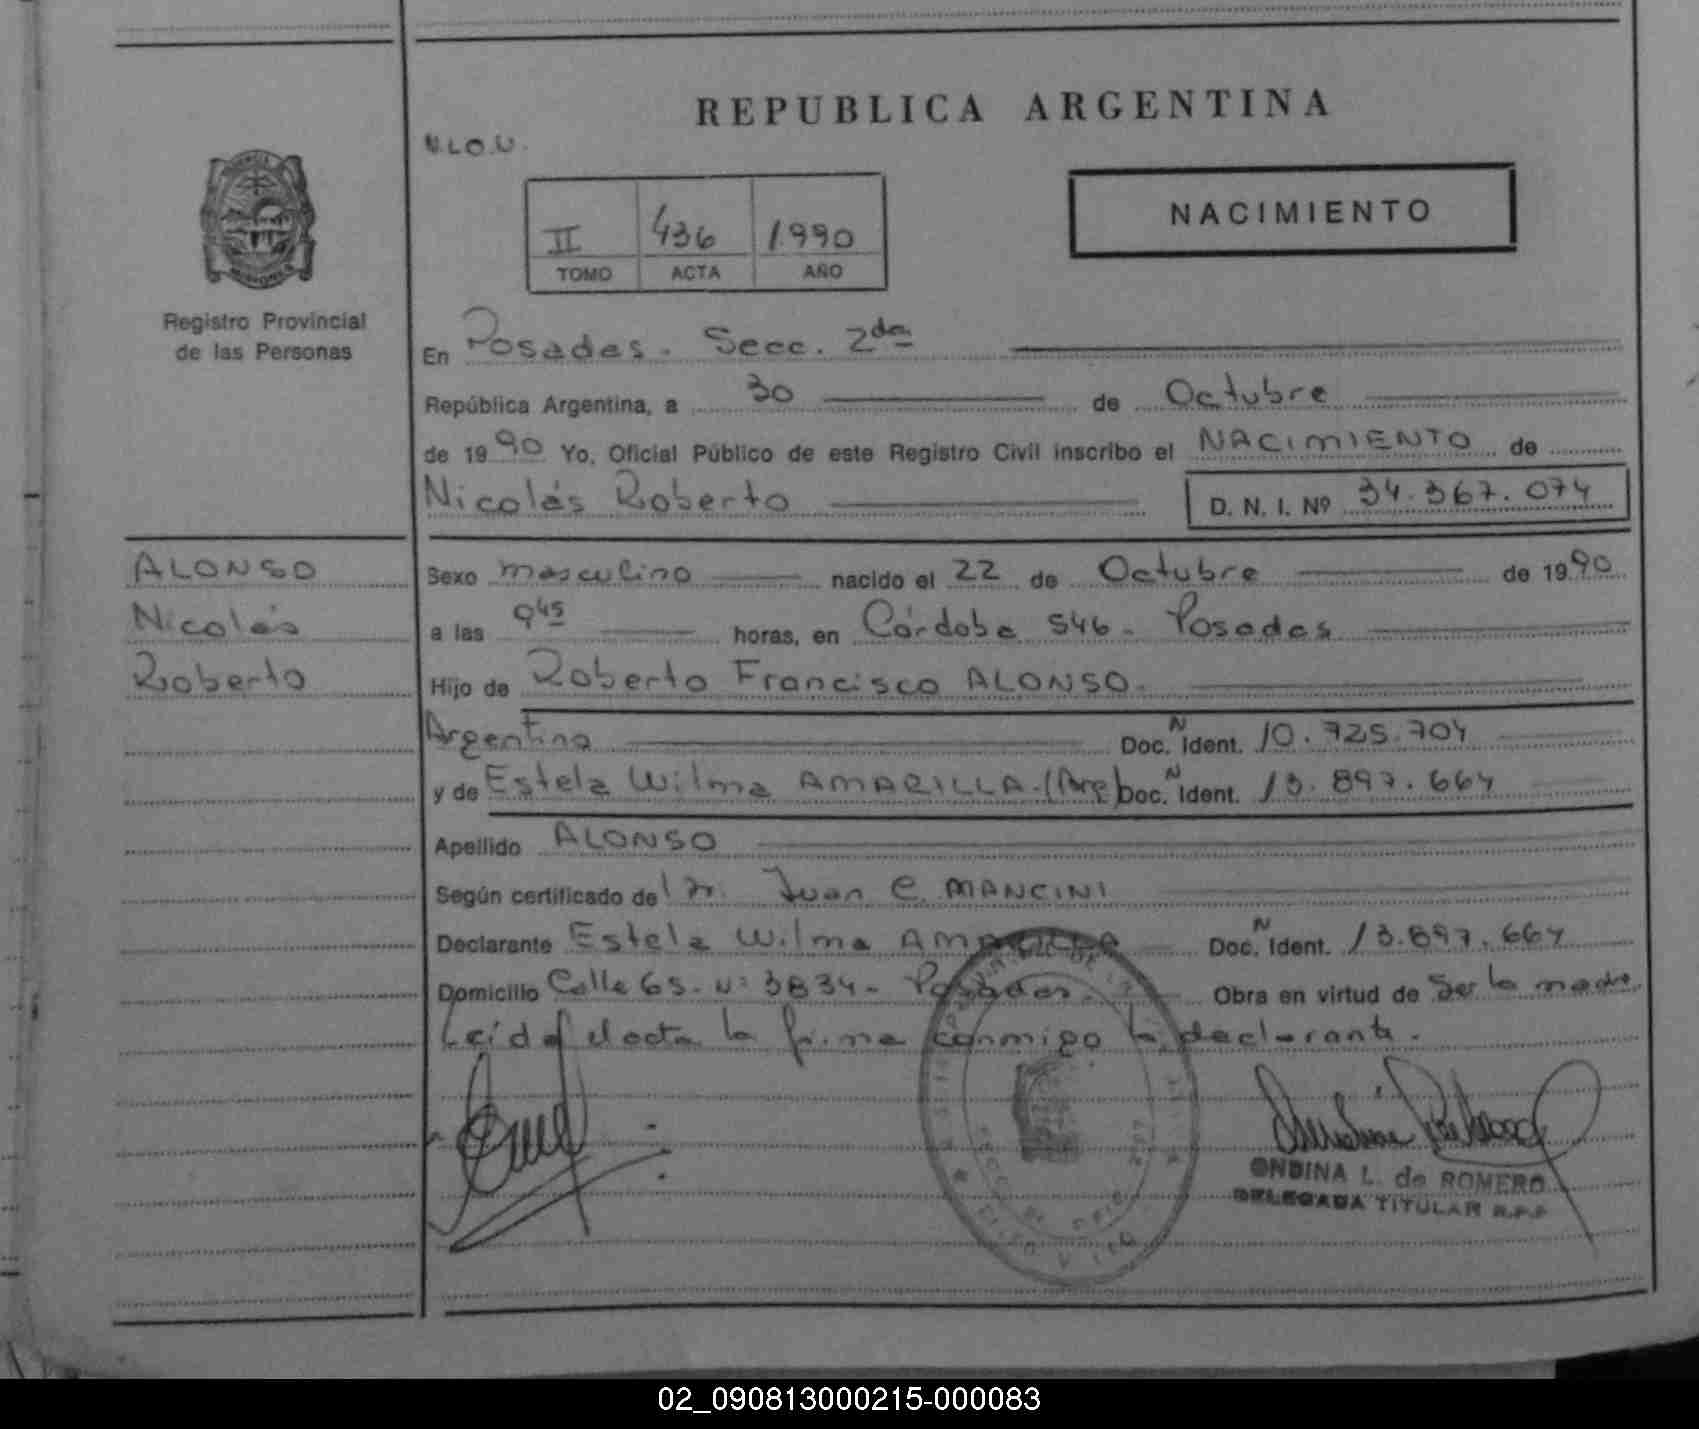 REPUBLICA ARGENTINA
N.L.O.U.
NACIMIENTO
II 436 1.990
TOMO ACTA AÑO
Registro Provincial
de las Personas
En Posadas. Secc. 2da
República Argentina, a 30 de Octubre
de 1990 Yo, Oficial Público de este Registro Civil inscribo el NACIMIENTO de
Nicolás Roberto D. N. I. Nº 34.367.074
ALONSO
Nicolás
Roberto
Sexo masculino nacido el 22 de Octubre de 1990
a las 9 45 horas, en Córdoba 546 - Posadas
Hijo de Roberto Francisco ALONSO.
Argentino Doc. N Ident. 10.725.704
y de Estela Wilma AMARILLA. (Arg) Doc. N Ident. 13.897.664
Apellido ALONSO
Según certificado del Dr. Juan C. MANCINI
Declarante Estela Wilma AMARILLA Doc. N Ident. 13.897.664
Domicilio Calle 65 - Nº 3834 - Posadas. Obra en virtud de Ser la madre.
Leída el acta la firma conmigo la declarante.
ONDINA L. de ROMERO
DELEGADA TITULAR R.P.P
02_090813000215-000083